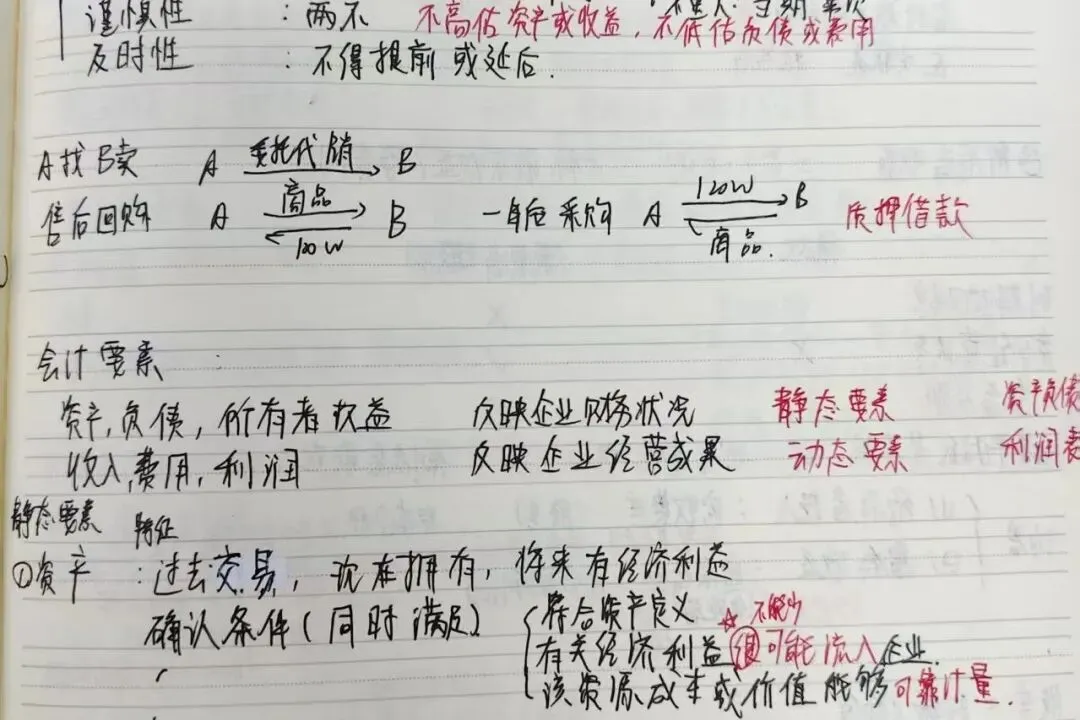 谨慎性 : 两不 不高估资产或收益，不低估负债或费用
及时性 : 不得提前或延后.
A找B卖 A 委托代销 B
售后回购 A 商品 100W B 一年后采购 A 120W 商品. B 质押借款
会计要素 :
资产,负债,所有者权益 反映企业财务状况 静态要素 资产负债
收入,费用,利润 反映企业经营成果 动态要素 利润表
静态要素 特征
①资产 : 过去交易, 现在拥有, 将来有经济利益
确认条件(同时满足) 符合资产定义 ☆不能少
有关经济利益很可能流入企业.
该资源成本或价值能够可靠计量.